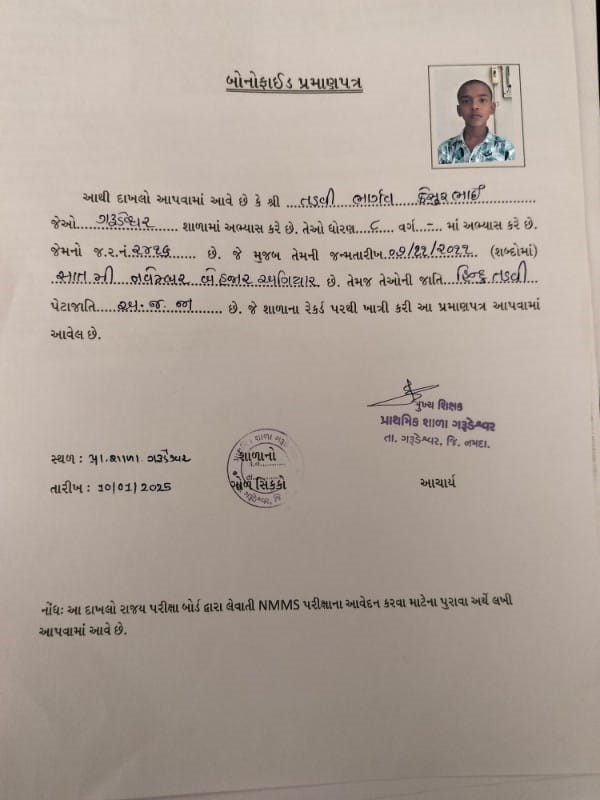 બોનોફાઈડ પ્રમાણપત્ર
આથી દાખલો આપવામાં આવે છે કે શ્રી ...તડવી ભાર્ગવ કેસુરભાઈ...
જેઓ...ગરૂડેશ્વર... શાળામાં અભ્યાસ કરે છે. તેઓ ધોરણ...૮... વર્ગ..-.. માં અભ્યાસ કરે છે.
જેમનો જ.ર.નં.૨૪૧૬... છે. જે મુજબ તેમની જન્મતારીખ.૦૭/૧૧/૨૦૧૧.. (શબ્દોમાં)
સાતમી નવેમ્બર બે હજાર અગિયાર છે. તેમજ તેઓની જાતિ ..હિન્દુ તડવી..
પેટાજાતિ ...અ.જ.જા... છે. જે શાળાના રેકર્ડ પરથી ખાત્રી કરી આ પ્રમાણપત્ર આપવામાં
આવેલ છે.
મુખ્ય શિક્ષક
પ્રાથમિક શાળા ગરૂડેશ્વર
તા. ગરૂડેશ્વર, જિ. નર્મદા.
સ્થળ : પ્રા.શાળા. ગરૂડેશ્વર
શાળાનો
તારીખ : 10/01/2025
ગોળ સિક્કો
આચાર્ય
નોંધઃ આ દાખલો રાજ્ય પરીક્ષા બોર્ડ દ્વારા લેવાતી NMMS પરીક્ષાના આવેદન કરવા માટેના પુરાવા અર્થે લખી
આપવામાં આવે છે.